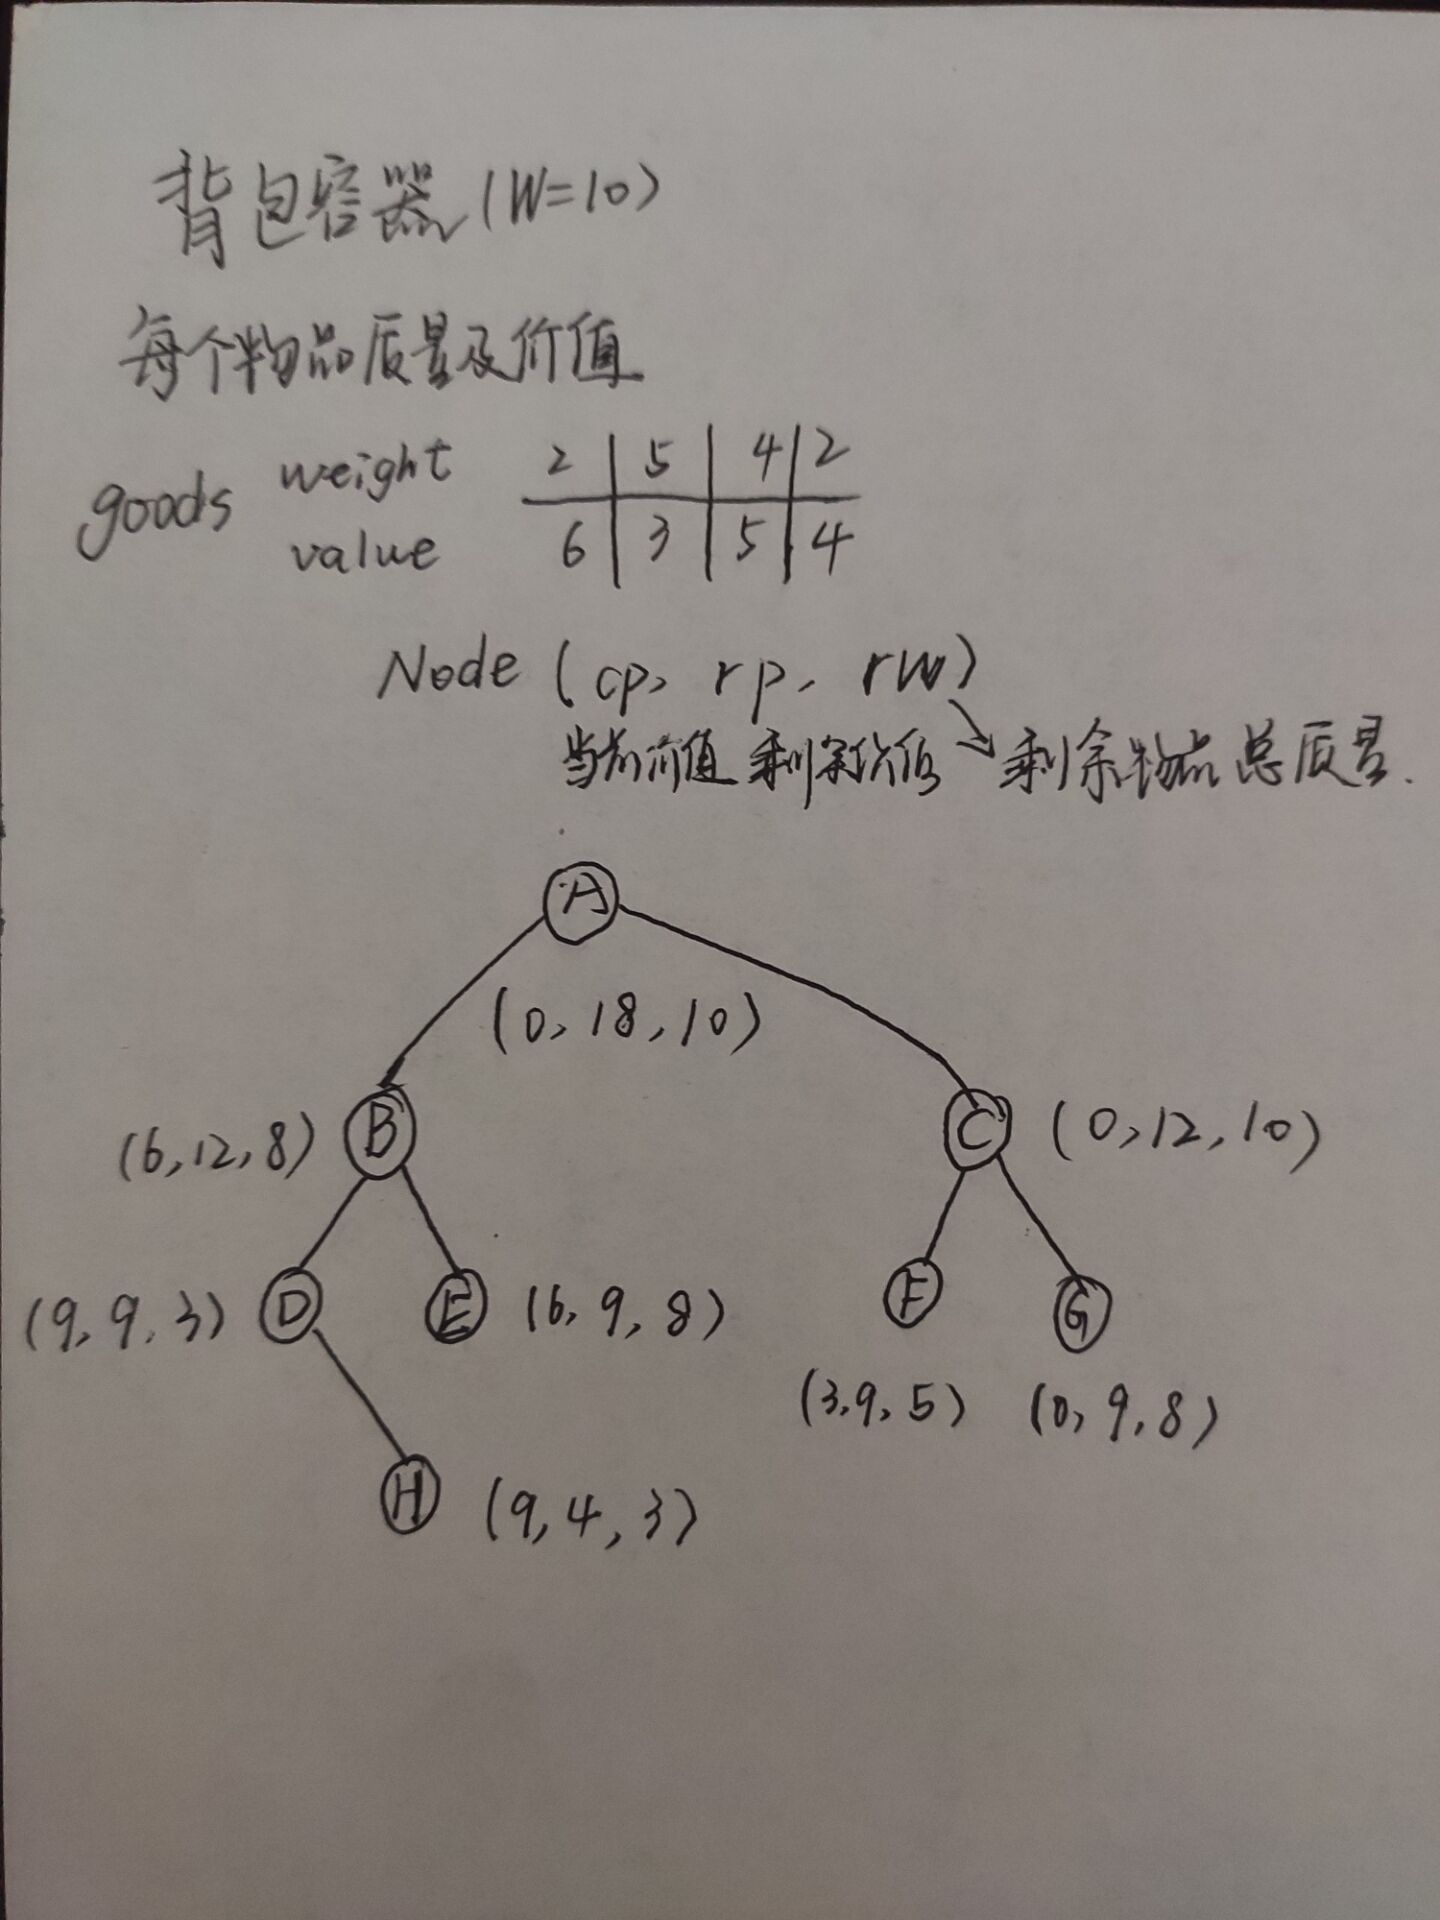 背包容器(W=10)
每个物品质量及价值
goods weight 2 5 4 2
value 6 3 5 4
Node (cp, rp, rw)
当前价值 剩余价值 剩余物品总质量.
A
(0,18,10)
(6,12,8) B C (0,12,10)
(9,9,3) D E (6,9,8) F G
(3,9,5) (0,9,8)
H (9,4,3)